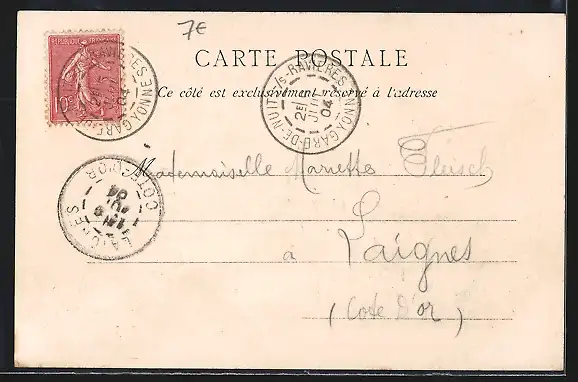 7€
REPUBLIQUE FRANÇAISE
10c
CARTE POSTALE
Ce côté est exclusivement réservé à l'adresse
GARE-DE-NUITS-S/S-RAVIERES YONNE
2E
JUIL
04
Mademoiselle Mariette Fleisch
LAIGNES
COTE-D'OR
04
à Laignes
(Cote d'or)